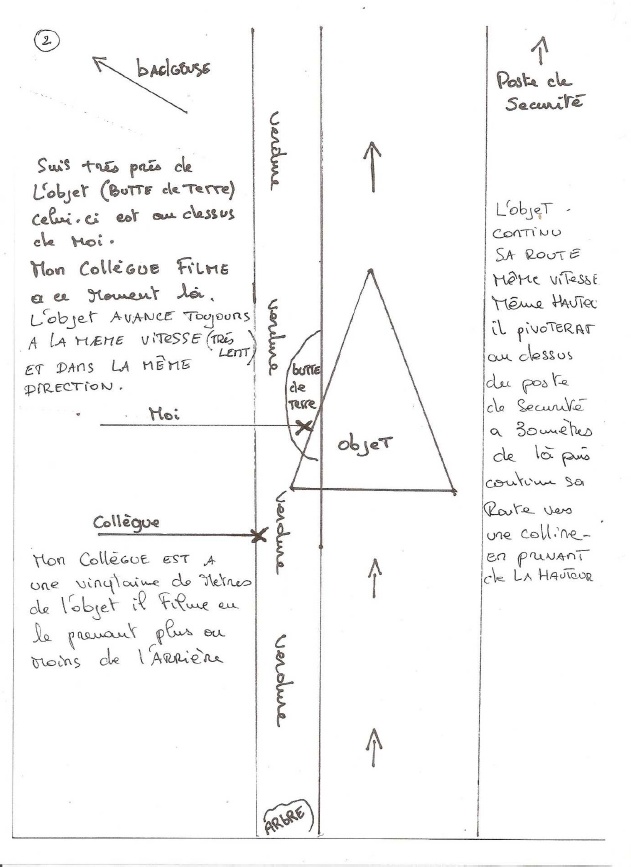 2
badgeuse
Poste de
Securité
Verdure
Suis très près de
L'objet (BUTTE de TERRE)
celui.ci est au dessus
de Moi.
Mon Collègue FILME
a ce Moment là.
L'objet AVANCE TOUJOURS
A LA MEME VITESSE (TRÈS
LENT)
ET DANS LA MÊME
DIRECTION.
L'OBJET
CONTINU
SA ROUTE
MÊME VITESSE
MÊME HAUTEU
il pivoterat
au dessus
du poste
de Securité
a 30 mètres
de là puis
continu sa
Route vers
une colline
en prenant
de LA HAUTEUR
Verdure
BUTTE
de
Terre
Moi
OBJET
Collègue
Verdure
Mon Collègue EST A
une vingtaine de Mètres
de l'objet il Filme en
le prenant plus ou
Moins de l'Arrière
Verdure
ARBRE